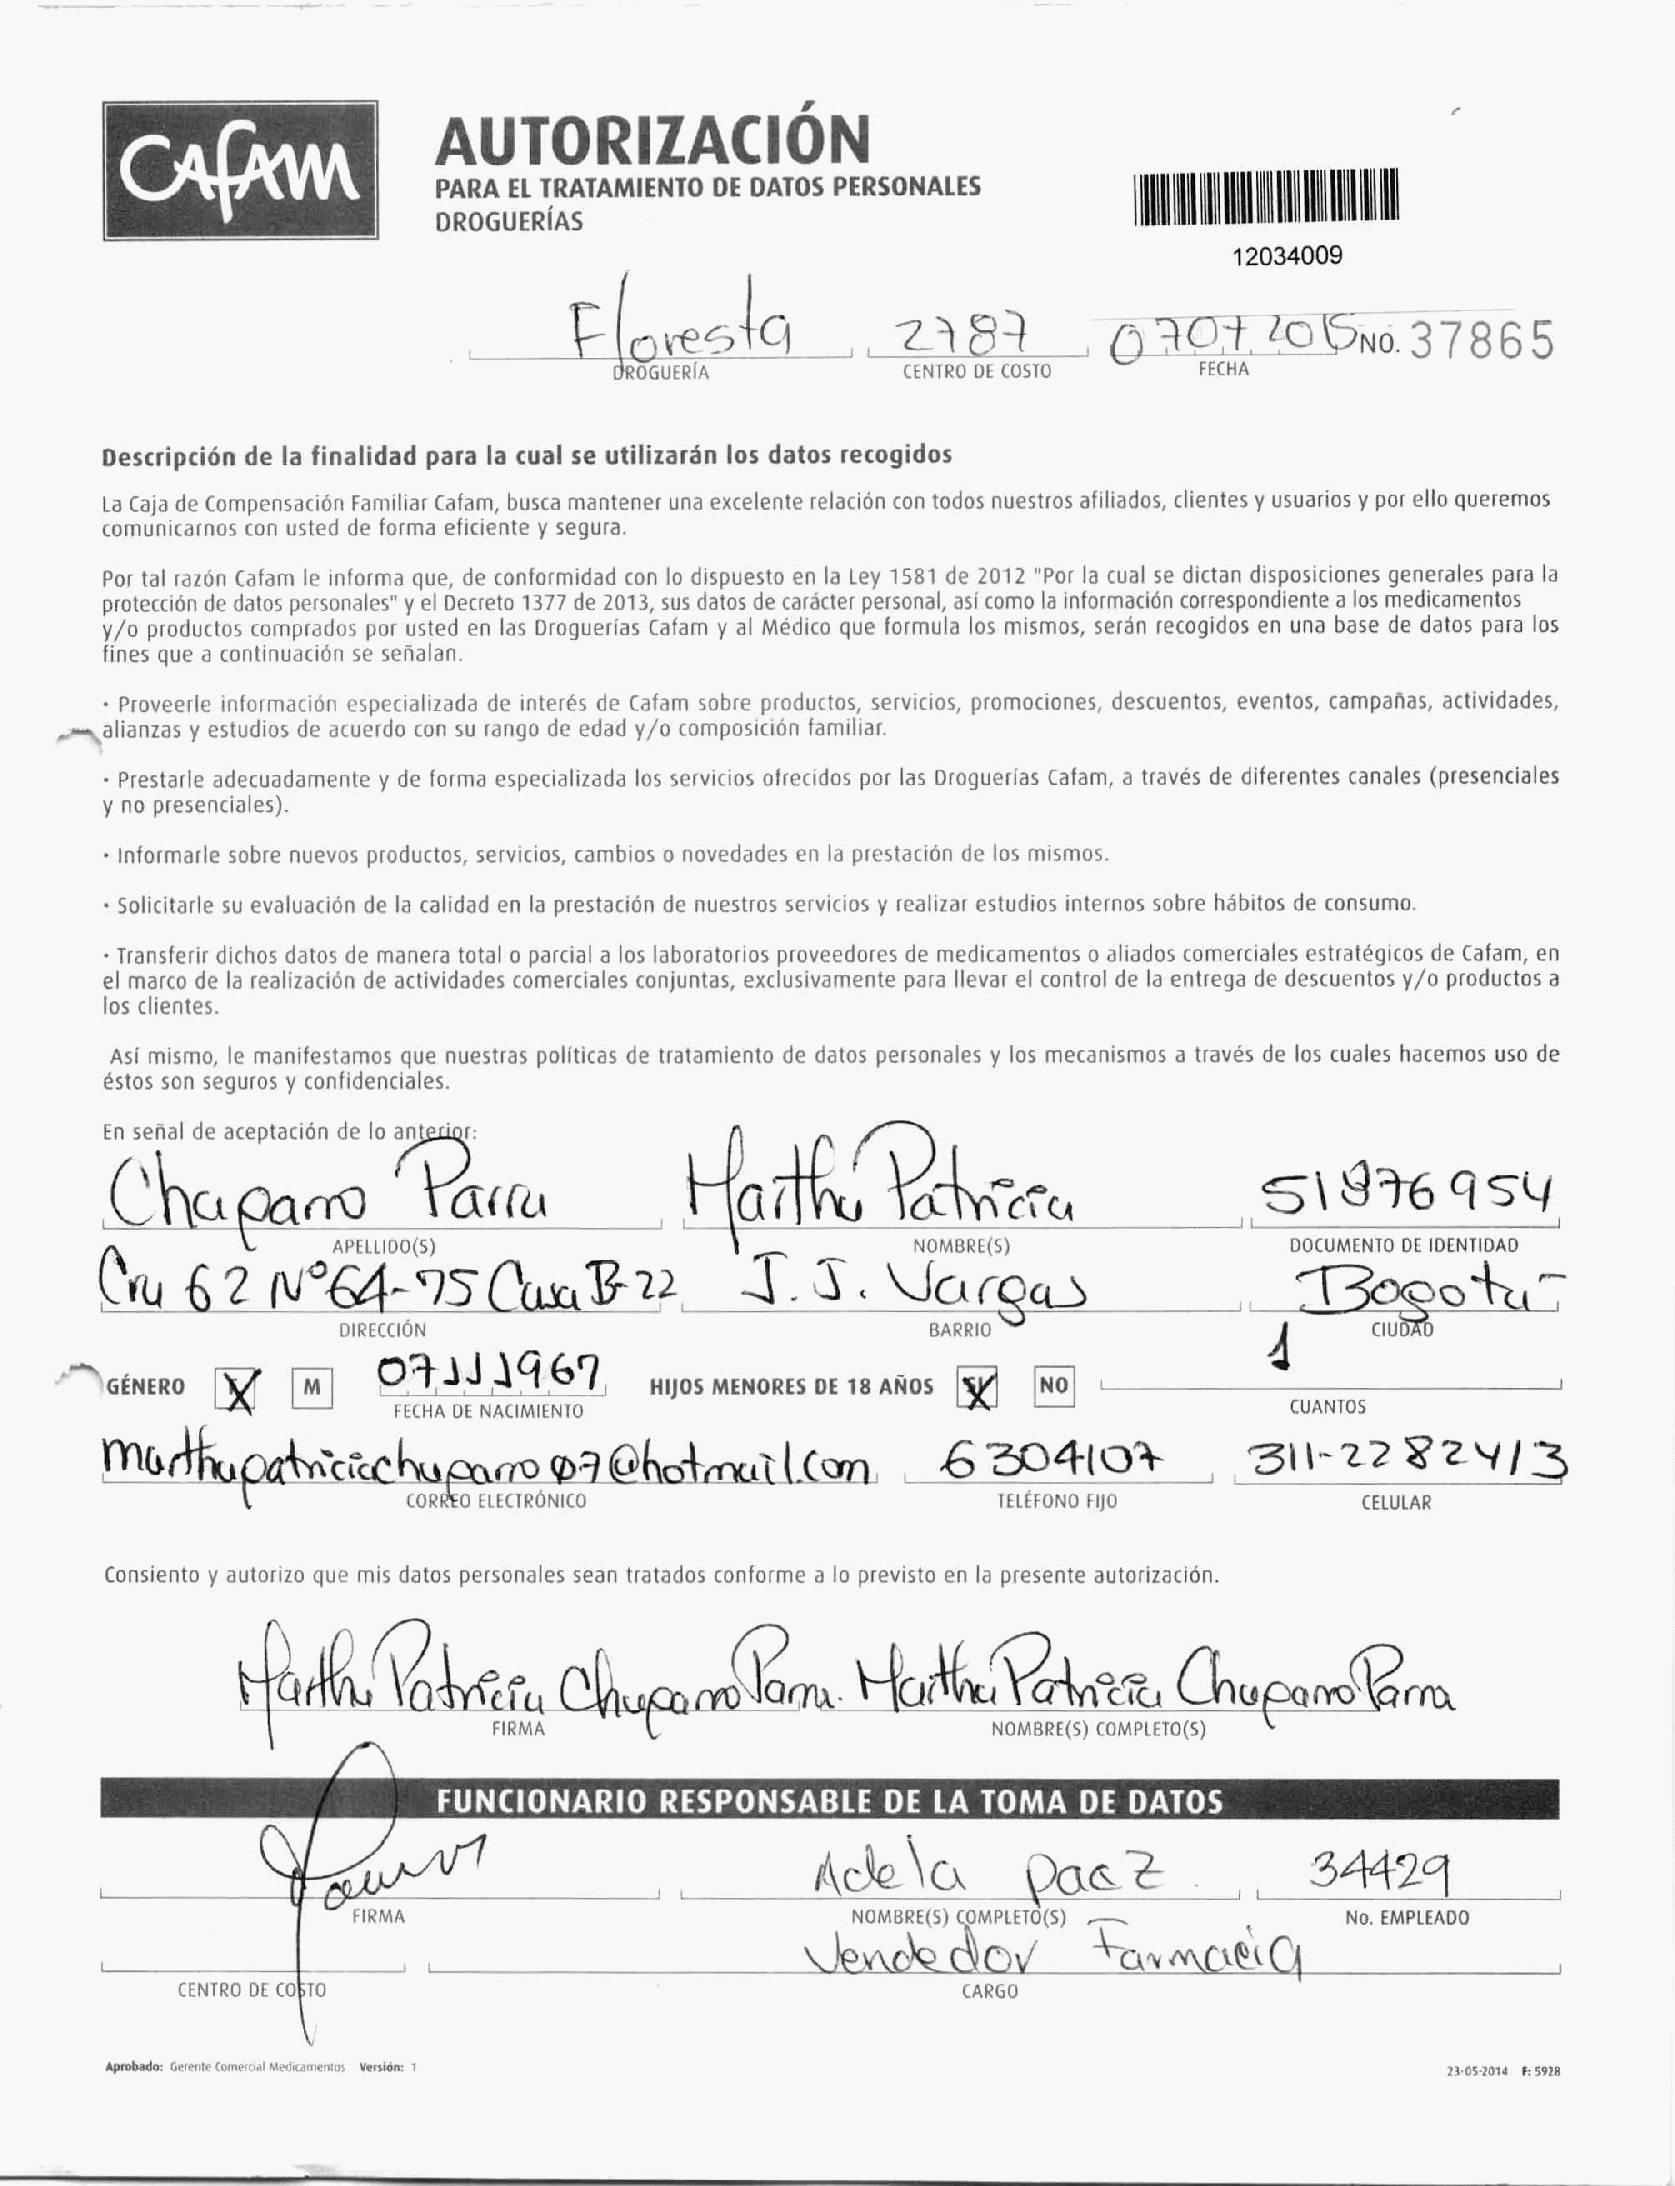 Cafam
AUTORIZACIÓN
PARA EL TRATAMIENTO DE DATOS PERSONALES
DROGUERÍAS
12034009
Floresta 2787 07072015 No. 37865
DROGUERÍA CENTRO DE COSTO FECHA
Descripción de la finalidad para la cual se utilizarán los datos recogidos
La Caja de Compensación Familiar Cafam, busca mantener una excelente relación con todos nuestros afiliados, clientes y usuarios y por ello queremos
comunicarnos con usted de forma eficiente y segura.
Por tal razón Cafam le informa que, de conformidad con lo dispuesto en la Ley 1581 de 2012 "Por la cual se dictan disposiciones generales para la
protección de datos personales" y el Decreto 1377 de 2013, sus datos de carácter personal, así como la información correspondiente a los medicamentos
y/o productos comprados por usted en las Droguerías Cafam y al Médico que formula los mismos, serán recogidos en una base de datos para los
fines que a continuación se señalan.
· Proveerle información especializada de interés de Cafam sobre productos, servicios, promociones, descuentos, eventos, campañas, actividades,
alianzas y estudios de acuerdo con su rango de edad y/o composición familiar.
· Prestarle adecuadamente y de forma especializada los servicios ofrecidos por las Droguerías Cafam, a través de diferentes canales (presenciales
y no presenciales).
· Informarle sobre nuevos productos, servicios, cambios o novedades en la prestación de los mismos.
· Solicitarle su evaluación de la calidad en la prestación de nuestros servicios y realizar estudios internos sobre hábitos de consumo.
· Transferir dichos datos de manera total o parcial a los laboratorios proveedores de medicamentos o aliados comerciales estratégicos de Cafam, en
el marco de la realización de actividades comerciales conjuntas, exclusivamente para llevar el control de la entrega de descuentos y/o productos a
los clientes.
Así mismo, le manifestamos que nuestras políticas de tratamiento de datos personales y los mecanismos a través de los cuales hacemos uso de
éstos son seguros y confidenciales.
En señal de aceptación de lo anterior:
Chaparro Parra Martha Patricia 51876954
APELLIDO(S) NOMBRE(S) DOCUMENTO DE IDENTIDAD
Cra 62 Nº 64-75 Casa B-22 J.J. Vargas Bogotá
DIRECCIÓN BARRIO CIUDAD
GÉNERO X M 07111967 HIJOS MENORES DE 18 AÑOS SI X NO 1
FECHA DE NACIMIENTO CUANTOS
marthapatriciachaparro07@hotmail.com 6304107 311-2282413
CORREO ELECTRÓNICO TELÉFONO FIJO CELULAR
Consiento y autorizo que mis datos personales sean tratados conforme a lo previsto en la presente autorización.
Martha Patricia Chaparro Parra. Martha Patricia Chaparro Parra
FIRMA NOMBRE(S) COMPLETO(S)
FUNCIONARIO RESPONSABLE DE LA TOMA DE DATOS
Adela paez 34429
FIRMA NOMBRE(S) COMPLETO(S) No. EMPLEADO
Vendedor Farmacia
CENTRO DE COSTO CARGO
Aprobado: Gerente Comercial Medicamentos Versión: 1 23-05-2014 F: 5928